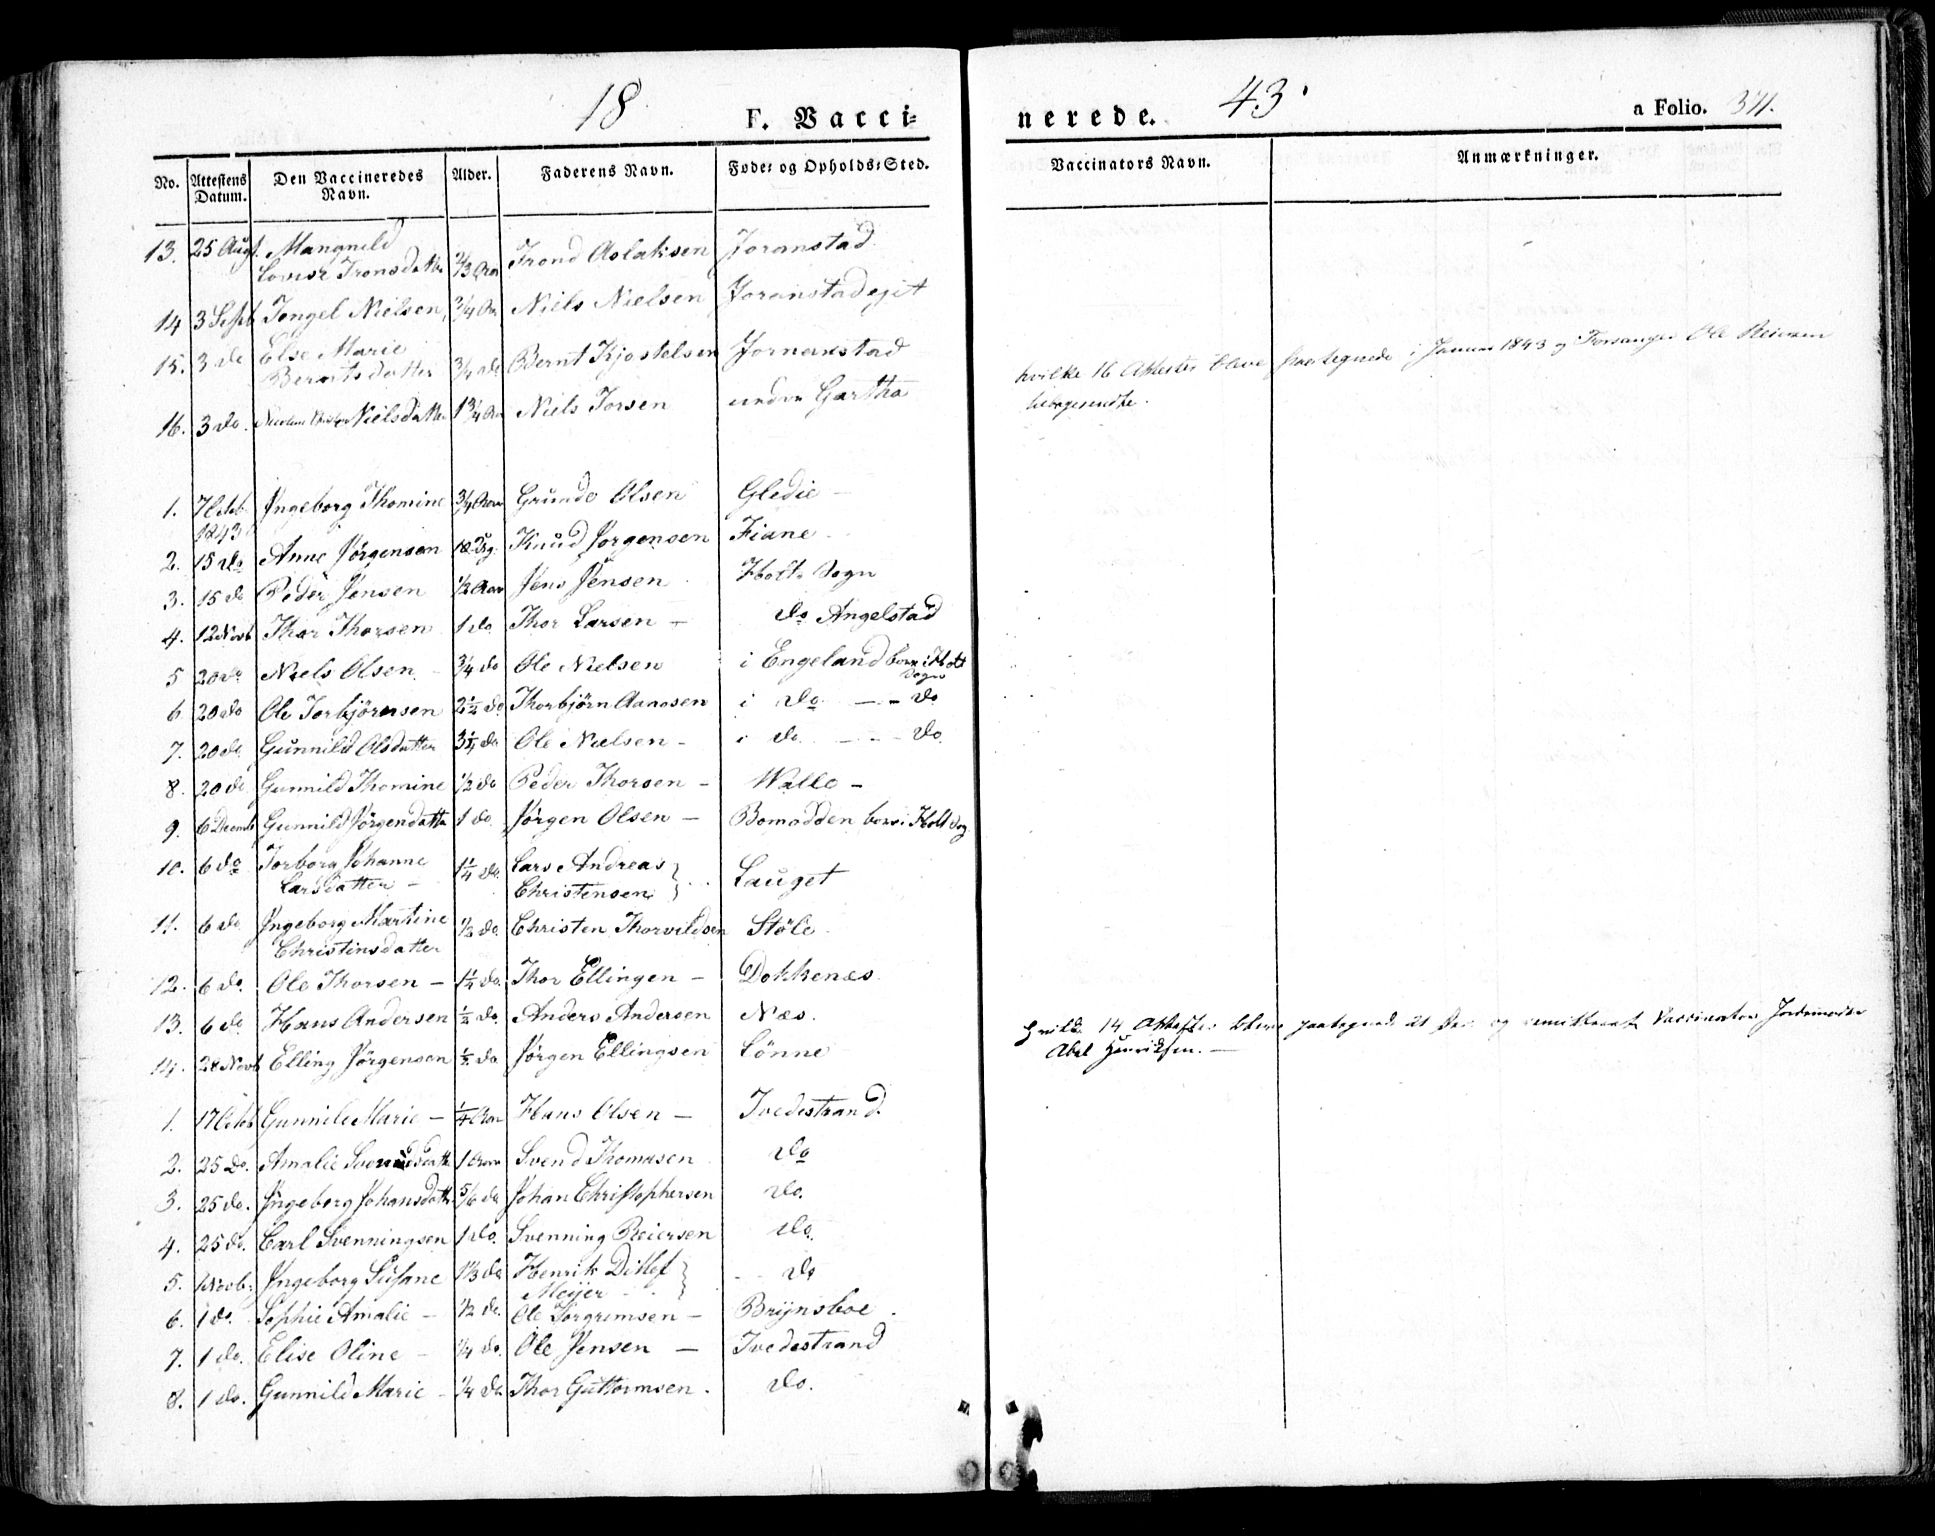 18 43.
F. Vaccinerede. a Folio. 371.
No. Attestens Datum. Den Vaccineredes Navn. Alder. Faderens Navn. Føde- og Opholds-Sted. Vaccinators Navn. Anmærkninger.
13. 25 Augt. Mangnild
Lovise Tronsdatter 2/3 Aar Trond Aslaksen Joranstad
14 3 Septb Tengel Nielsen, 3/4 Aar Niels Nielsen Joranstadejet
15. 3 do Else Marie
Berntsdatter 3/4 do Bernt Kjostelsen Jornanstad
16. 3 do. Nielsdatter 1 3/4 Aar Niels Torsen under Gartha
hvilke 16 Attester bleve paategnede i Januar 1843 og Forsanger Ole Reiersen
1. 7 Octb Ingeborg Thomine 3/4 Aar Grunde Olsen Gledie -
1843
2. 15 do Anne Jørgensen 18 Knud Jorgensen Fiane
3. 15 do Peder Jensen 1/2 Aar Jens Jensen Holts Sogn
4. 12 Novb Thor Thorsen 1 do Thor Larsen - do Angelstad
5 20 do Niels Olsen 3/4 do Ole Nielsen i Engeland boer i Holt
Sogn
6 20 do Ole Torbjörnsen 2 1/2 do Thorbjörn Aanosen i do - - do
7. 20 do Gunnild Olsdatter 3 1/4 do Ole Nielsen - i do - - do
8. 20 do Gunnild Thomine 1/2 do Peder Thorsen - Walle -
9. 6 Decemb Gunnild Jörgendatter 1 do Jörgen Olsen - Bomodden boer i Holt Sog
10. 6 do Torborg Johanne
Larsdatter - 1 1/4 do. Lars Andreas
Christensen Lauget
11. 6 do Ingeborg Martine 1/2 do. Christen Thorvildsen Støle
Christinsdatter
12. 6 do. Ole Thorsen - 1 1/4 do. Thor Ellingen - Dokkenæs
13. 6 do Hans Andersen 1/2 do. Anders Andersen Næs.
14. 28 Novb Elling Jörgensen 1/2 do Jörgen Ellingsen Lönne
Hvilke 14 Attester bleve paategnede og remitteret Vaccinator Jordemoder
Abel Henriksen. -
1. 17 Octb Gunnild Marie - 1/4 Aar Hans Olsen - Tvedestrand
2. 25 do. Amalie Svendsdatter 1 Aar Svend Thomasen do
3. 25 do. Ingeborg Johansdatter 5/6 do Johan Christophersen do.
4. 25 do. Carl Svenningsen 1 do. Svenning Reiersen do.
5. 1 Novb. Ingeborg Susane 1 1/3 do Henrik Ditlef
Meyer do
6. 1 do. Sophie Amalie - 1/2 do. Ole Torgrimsen - Brynsboe
7. 1 do. Elise Oline - 1/4 do. Ole Jensen - Tvedestrand
8. 1 do. Gunnild Marie - 1/4 do Thor Guttormsen. do.